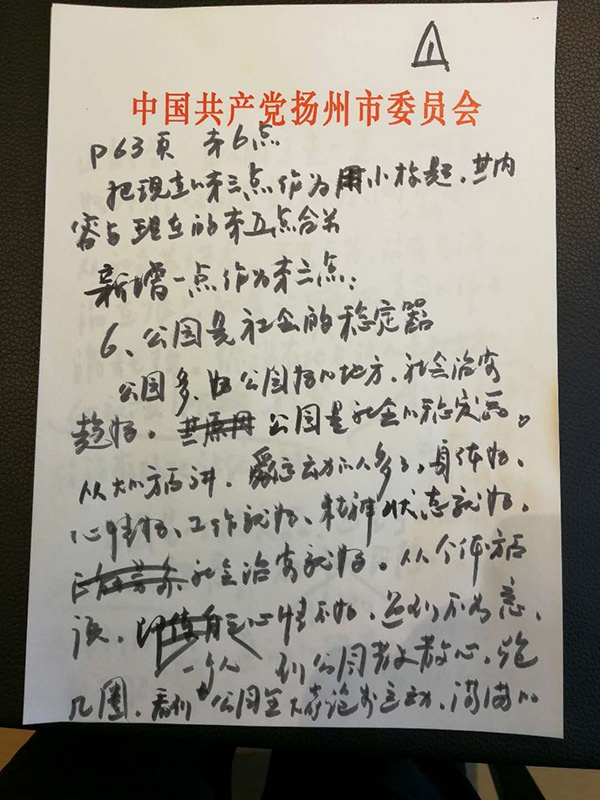 1
中国共产党扬州市委员会
P63页 第6点
把现在的第三点作为小标题,其内
容与现在的第五点合并
新增一点作为第三点:
6、公园是社会的稳定器
公园多、好公园好的地方,社会治安
越好。公园是社会的稳定器。
从大的方面讲,爱运动的人多了,身体好、
心情好、工作就好、精神状态就好,
社会治安就好。从个体方面
讲,心情不好,遇到不如意,
一个人 到公园散散心,跑
几圈,看到公园里大家运动,满满的